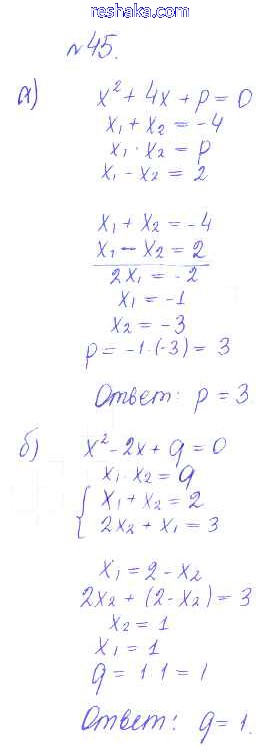 reshaka.com
№45.
а) x² + 4x + p = 0
x₁ + x₂ = -4
x₁ · x₂ = p
x₁ - x₂ = 2
x₁ + x₂ = -4
x₁ - x₂ = 2
2x₁ = -2
x₁ = -1
x₂ = -3
p = -1·(-3) = 3
Ответ: p = 3
б) x² - 2x + q = 0
x₁ · x₂ = q
{ x₁ + x₂ = 2
2x₂ + x₁ = 3
x₁ = 2 - x₂
2x₂ + (2 - x₂) = 3
x₂ = 1
x₁ = 1
q = 1·1 = 1
Ответ: q = 1.